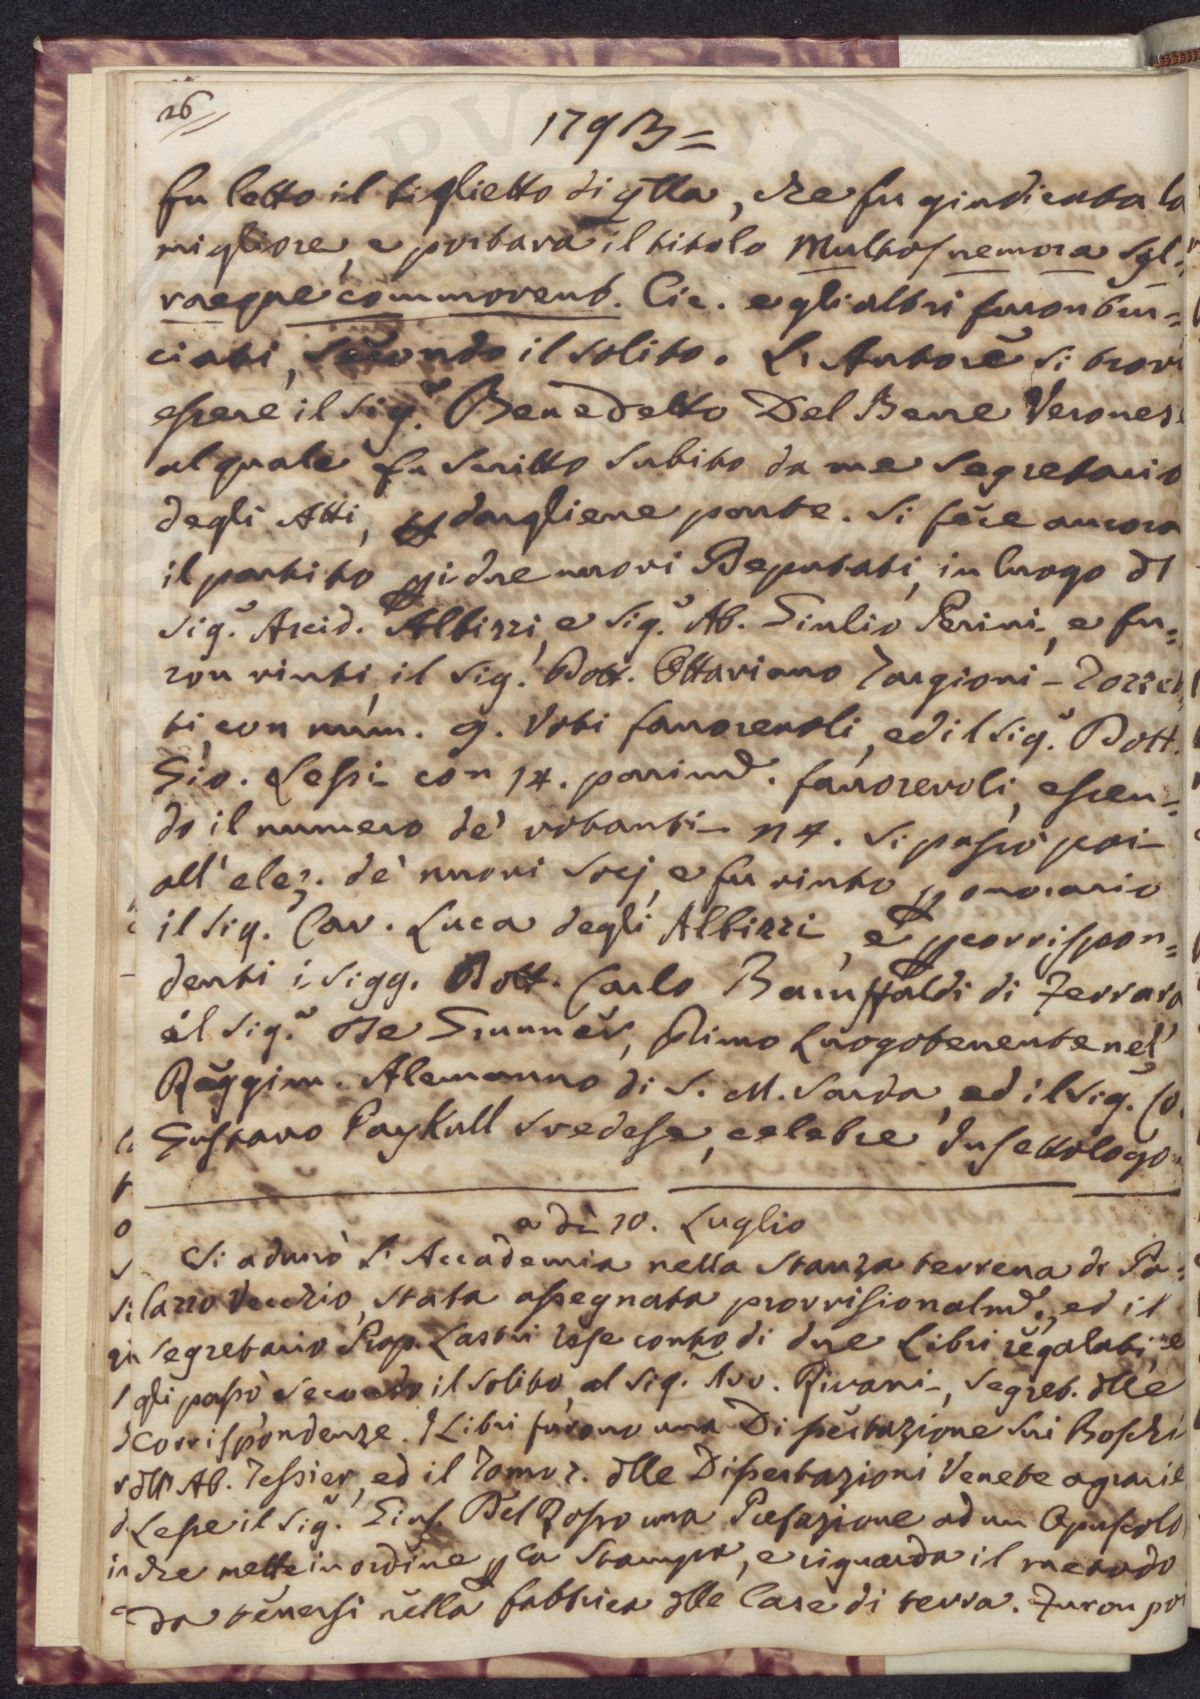 26//
1793=
fu letto il biglietto di qlla, che fu giudicata la
migliore, e portava il titolo Multos nemora syl-
vaeque commovent. Cic. e gli altri furon bru=
ciati, secondo il solito. L'Autore si trovò
essere il Sig.r Benedetto Del Bene Verones
al quale fu scritto subito da me Segretario
degli Atti, p dargliene parte. Si fece ancora
il partito p i due nuovi Deputati, in luogo dl
Sig.r Arcid. Albizzi, e Sig.r Ab. Giulio Perini, e fu=
ron vinti, il Sig.r Dott. Ottaviano Targioni-Tozzet
ti, con num. 9. Voti favorevoli, ed il Sig.r Dott.
Gio. Lessi con 14. parimd. favorevoli, essen=
do il numero de' votanti 14. Si passò poi
all'elez. de' nuovi Socj, e fu vinto p onorario
il Sig. Cav. Luca degli Albizzi, e p corrispon=
denti i Sigg. Dott. Carlo Baruffaldi di Ferrara
il Sig.r De Grunner, Primo Luogotenente nel
Reggim. Alemanno di S. M. Sarda, ed il Sig.r Co.
Gustavo Paykull Svedese, celebre Insettologo
a dì 10. Luglio
Si adunò l'Accademia nella stanza terrena di Pa=
lazzo Vecchio, stata assegnata provvisionalmd., ed il
Segretario Prop. Lastri rese conto di due Libri regalati, e
gli passò secondo il solito, al Sig. Avv. Rivani, Segret. dlle
Corrispondenze. I Libri furono una Dissertazione sui Boschi
dll'Ab. Tessier, ed il Tomo 2. dlle Dissertazioni Venete agrarie
Lesse il Sig.r Gius. Del Rosso una Prefazione ad un Opuscolo
che mette in ordine p la stampa, e riguarda il metodo
da tenersi nella fabbrica dlle Case di terra. Furon poi